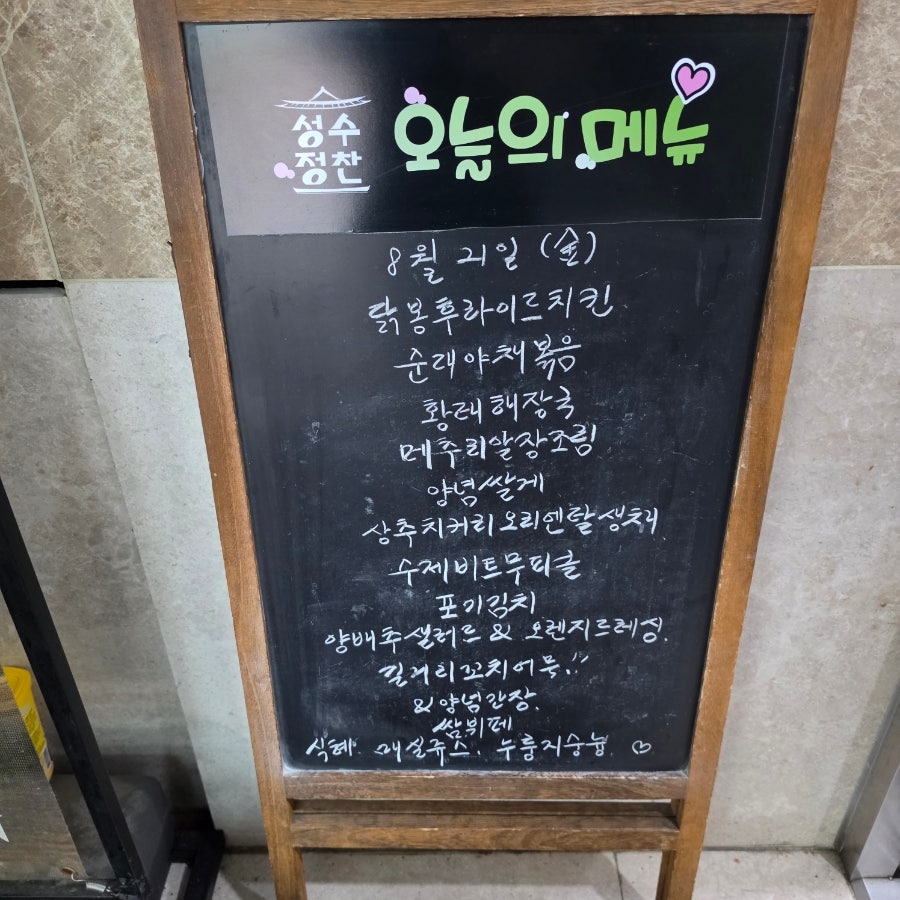 성수
정찬
오늘의 메뉴
8월 21일 (金)
닭봉후라이드치킨
순대야채볶음
황태해장국
메추리알장조림
양념쌀게
상추치커리오리엔탈생채
수제비트무피클
포기김치
양배추샐러드 & 오렌지드레싱.
길거리꼬치어묵!!
&양념간장.
쌈뷔페
식혜. 매실쥬스. 누룽지숭늉. ♡